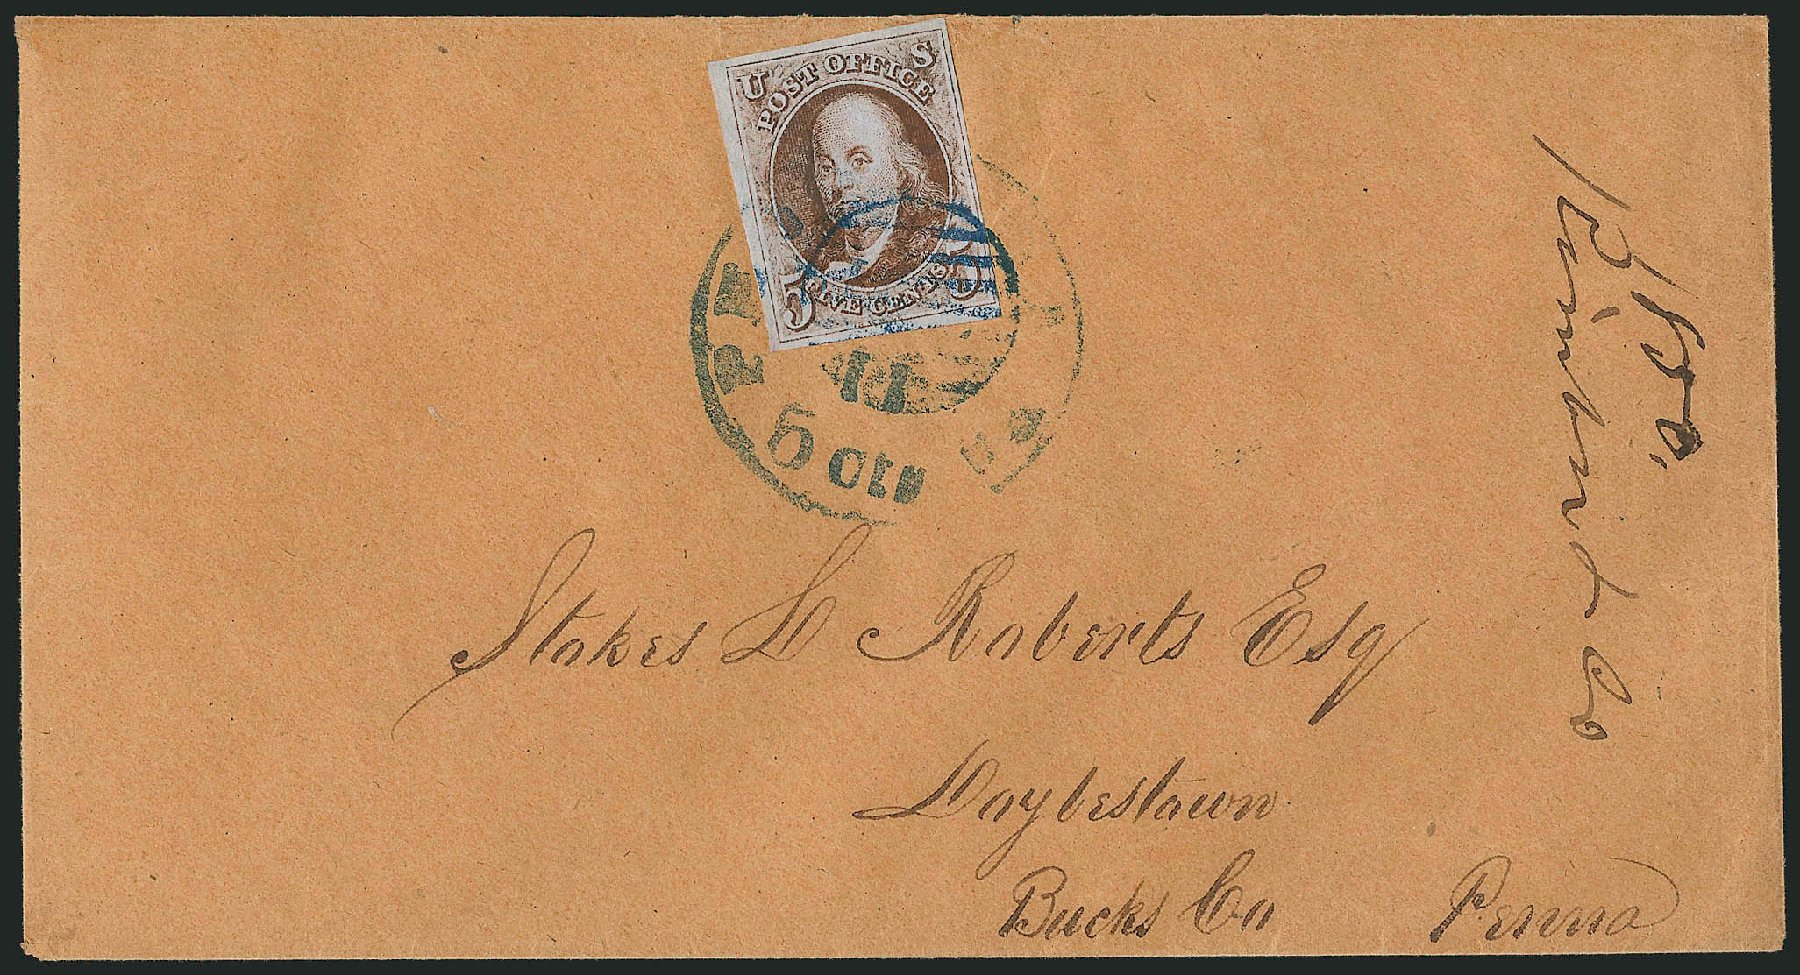 U S
POST OFFICE
5 FIVE CENTS 5
11
5 cts
Stokes L Roberts Esq
Doylestown
Bucks Co Penna